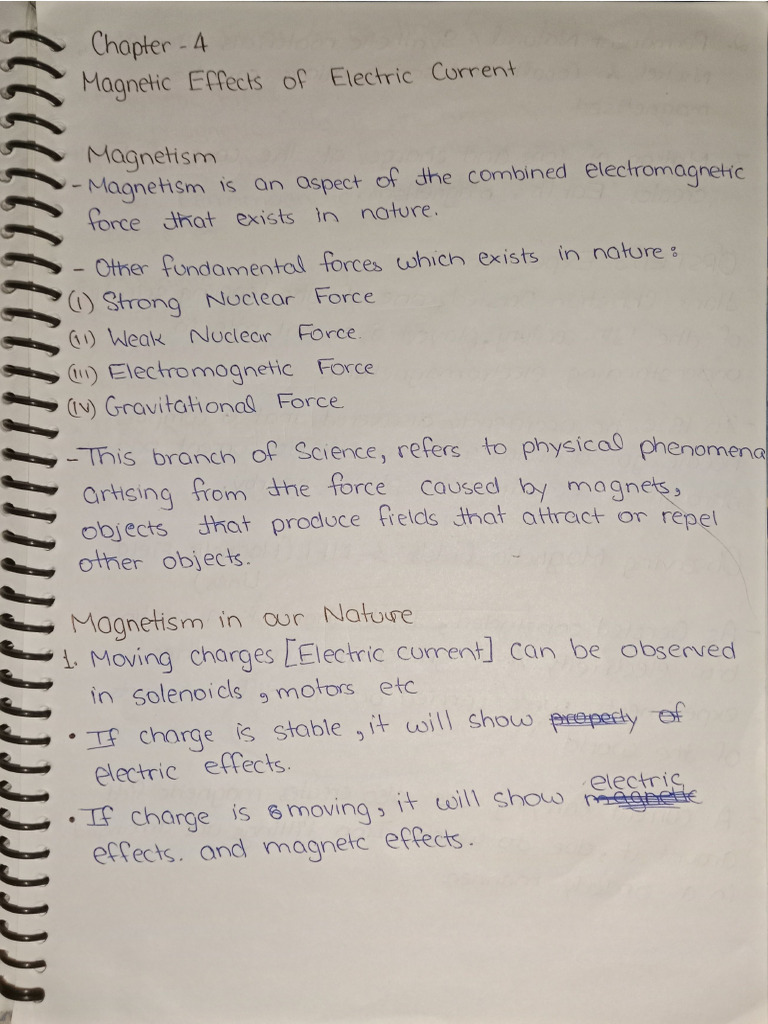 Chapter - 4
Magnetic Effects of Electric Current
Magnetism
- Magnetism is an aspect of the combined electromagnetic
force that exists in nature.
- Other fundamental forces which exists in nature:
(i) Strong Nuclear Force
(ii) Weak Nuclear Force.
(iii) Electromagnetic Force
(iv) Gravitational Force
- This branch of Science, refers to physical phenomena
artising from the force caused by magnets,
objects that produce fields that attract or repel
other objects.
Magnetism in our Nature
1. Moving charges [Electric current] can be observed
in solenoids, motors etc
• If charge is stable, it will show propedy of
electric effects.
electric
• If charge is moving, it will show magnetic
effects. and magnetc effects.